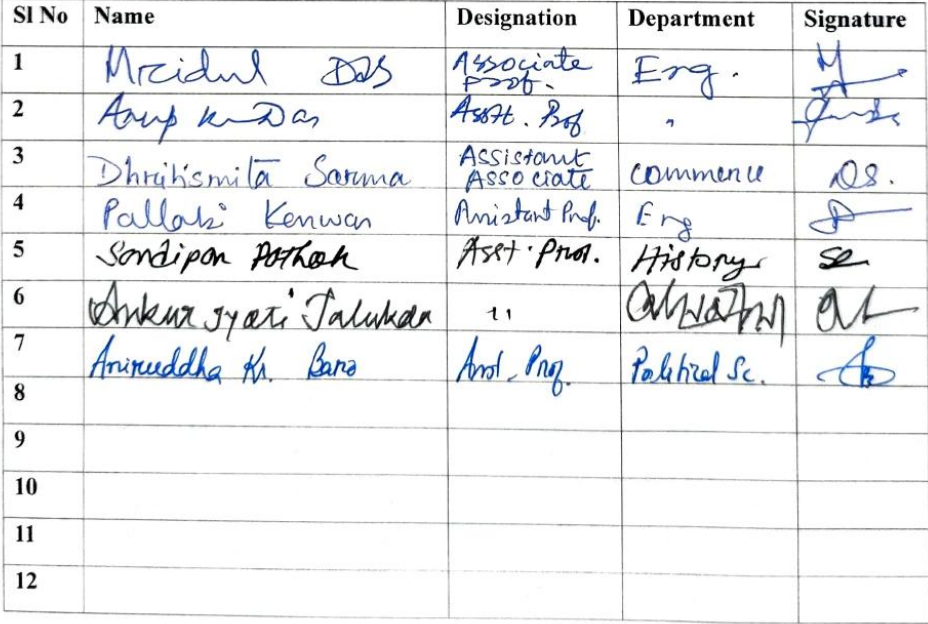 Sl No Name Designation Department Signature
1 Mridul Das Associate Prof. Eng.
2 Anup Kr Das Asstt. Prof "
3 Dhritismita Sarma Assistant Associate commerce DS.
4 Pallabi Konwar Assistant Prof. Eng
5 Sandipan Pathak Asst. Prof. History
6 Ankur Jyoti Talukdar "
7 Aniruddha Kr. Baro Asst. Prof. Political Sc.
8
9
10
11
12